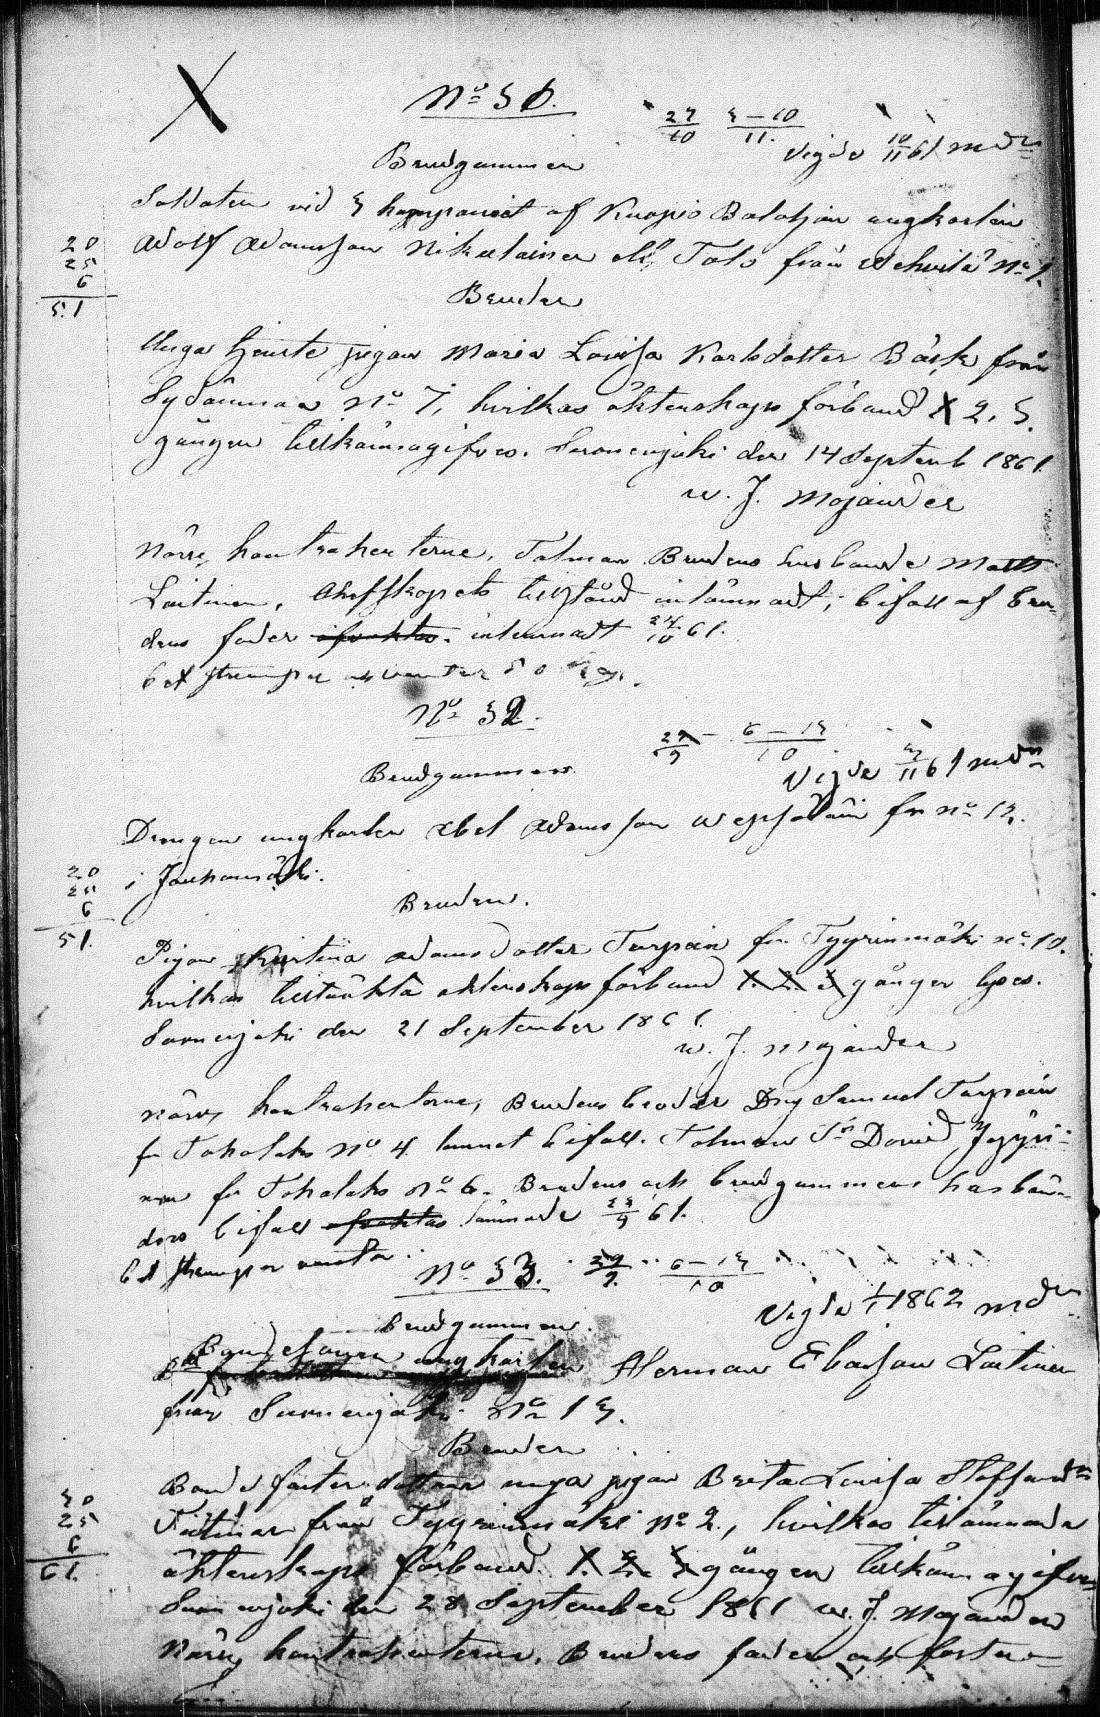 X
Nº 31.
27/10 3–10/11.
Vigde 10/11 61 mdr
Brudgummen
Soldaten vid 3 kompaniet af Kuopio Bataljon ungkarlen
Adolf Adamsson Nikulainen eller Tolo från Wehvilä Nº 1.
20
25
6
51
Bruden
Unga tjenste pigan Maria Lovisa Karlsdotter Bäck från
Sydänmaa Nº 7, hvilkas äktenskaps förbund X 2, 3.
gången tillkännagifves. Suonenjoki den 14 Septemb 1861.
W. J. Mojander
Närv. kontrahenterne, Talman Brudens husbonde Matts
Laitinen, tillstånd inlämnadt, bifall af bru-
dens fader inlemnadt 24/10 61.
bet strumpor 50 kop.
Nº 32.
29/9 – 6–13/10
Vigde 3/11 61 mdr
Brudgummen
Drengen ungkarlen Abel Adamsson Wepsäläin fr Nº 12.
i Jauhomäki.
20
25
6
51.
Bruden.
Pigan Kristina Adamsdotter Turpein fr. Tyyrinmäki Nº 10.
hvilkas tilltänkta äktenskaps förbund 1. 2. 3 gången lyses.
Suonenjoki den 21 September 1861.
W. J. Mojander
Närv. kontrahenterne, Brudens broder Drg Samuel Turpein
fr Toholaks Nº 4 lemnat bifall. Talman David
fr Toholaks Nº 6. Brudens och brudgummens husbön-
ders bifall lämnade 22/9 61.
bet strumpor
Nº 33. 29/9. 6–13/10
Vigde 1/1 1862 mdr
brudgummen.
Bondesonen ungkarlen Herman Ebasson Laitinen
från Suonenjoki Nº 13.
Bruden
30
25
6
61.
Bonde foster dottren unga pigan Brita Lovisa Staffansdr
från Tyyrinmäki Nº 2., hvilkas tillämnade
äktenskaps förbund. 1. 2. 3 gången tillkännagifves
Suonenjoki den 28 September 1861 W. J. Mojander
Närv. kontrahenterne, Brudens fader och foster-